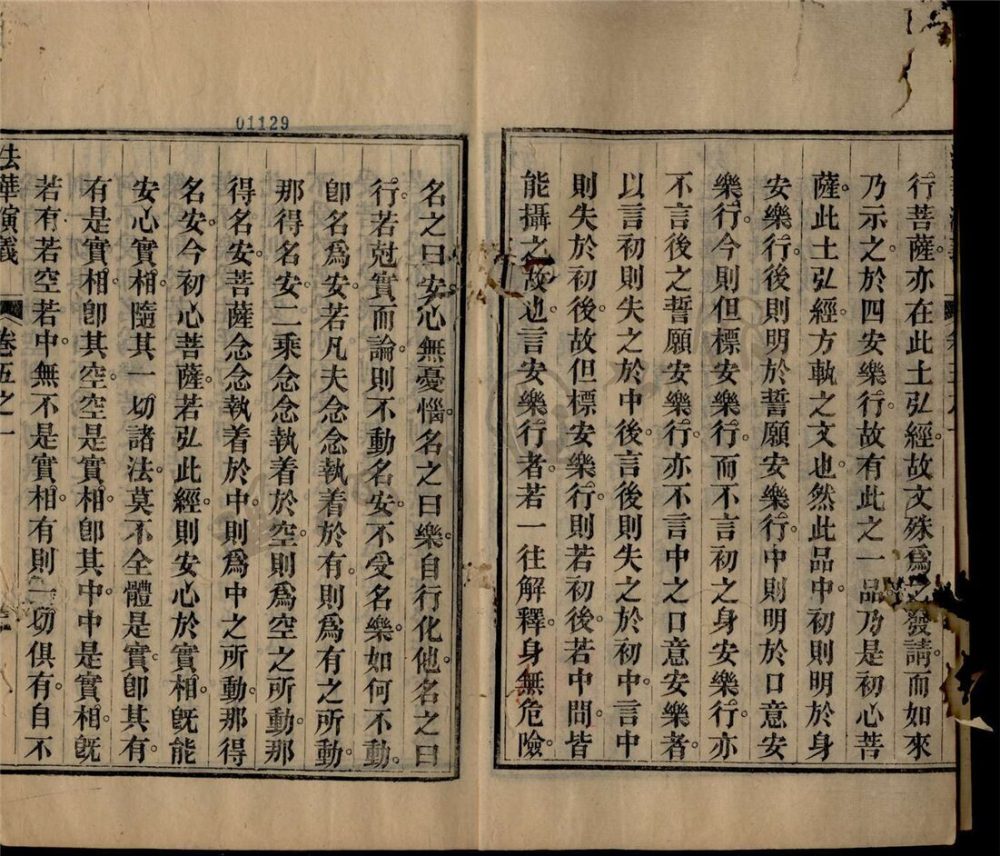 行菩薩。亦在此土弘經。故文殊爲之發請。而如來
乃示之於四安樂行。故有此之一品。乃是初心菩
薩。此土弘經。方軌之文也。然此品中。初則明於身
安樂行。後則明於誓願安樂行。中則明於口意安
樂行。今則但標安樂行。而不言初之身安樂行。亦
不言後之誓願安樂行。亦不言中之口意安樂者。
以言初則失之於中後。言後則失之於初中。言中
則失於初後。故但標安樂行。則若初後。若中間。皆
能攝之故也。言安樂行者。若一往解釋。身無危險。
01129
名之曰安。心無憂惱。名之曰樂。自行化他。名之曰
行。若尅實而論。則不動名安。不受名樂。如何不動。
卽名爲安。若凡夫念念執着於有。則爲有之所動。
那得名安。二乘念念執着於空。則爲空之所動。那
得名安。菩薩念念執着於中。則爲中之所動。那得
名安。今初心菩薩。若弘此經。則安心於實相。旣能
安心實相。隨其一切諸法。莫不全體是實。卽其有。
有是實相。卽其空。空是實相。卽其中。中是實相。旣
若有若空若中。無不是實相。有則一切俱有。自不
法華演義 卷五之一